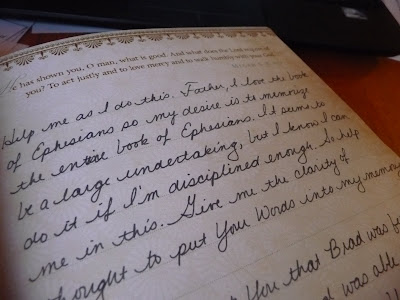 He has shown you, O man, what is good. And what does the Lord require of
you? To act justly and to love mercy and to walk humbly with your God.
MICAH 6:8
Help me as I do this. Father, I love the book
of Ephesians so my desire is to memorize
the entire book of Ephesians. It seems to
be a large undertaking, but I know I can
do it if I'm disciplined enough. So help
me in this. Give me the clarity of
thought to put Your Words into my memory
You that Brad was
was able